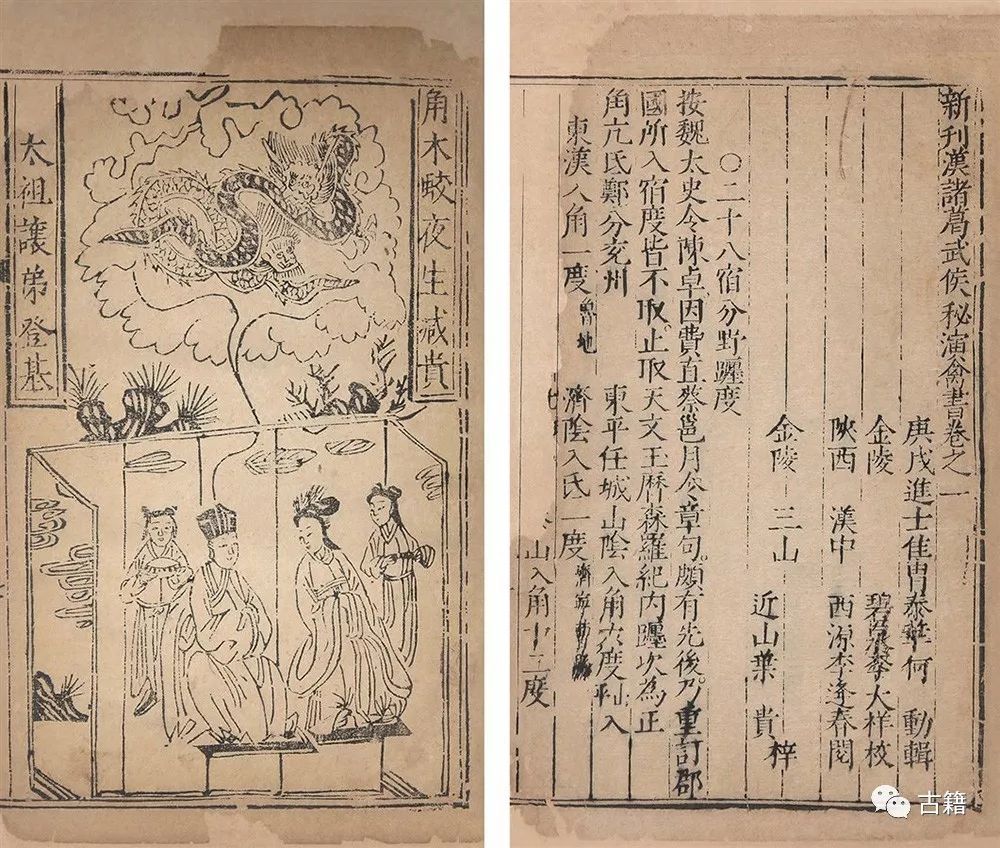 新刊漢諸葛武侯秘演禽書卷之一
庚戌進士佳胄泰華何 動輯
金陵 碧峯李大样校
陝西 漢中 西源李逢春閱
金陵 三山 近山葉 貴 梓
○二十八宿分野躔度
按魏太史令陳卓因費直蔡邕月令章句。頗有先後。乃重訂郡
國所入宿度皆不取。止取天文玉曆森羅紀內躔次為正
角亢氐鄭分兗州 東平任城山陰入角六度 入
東漢入角一度 魯地 濟陰入氐一度
山入角十二度
角木蛟夜生減貴
太祖讓弟登基
古籍